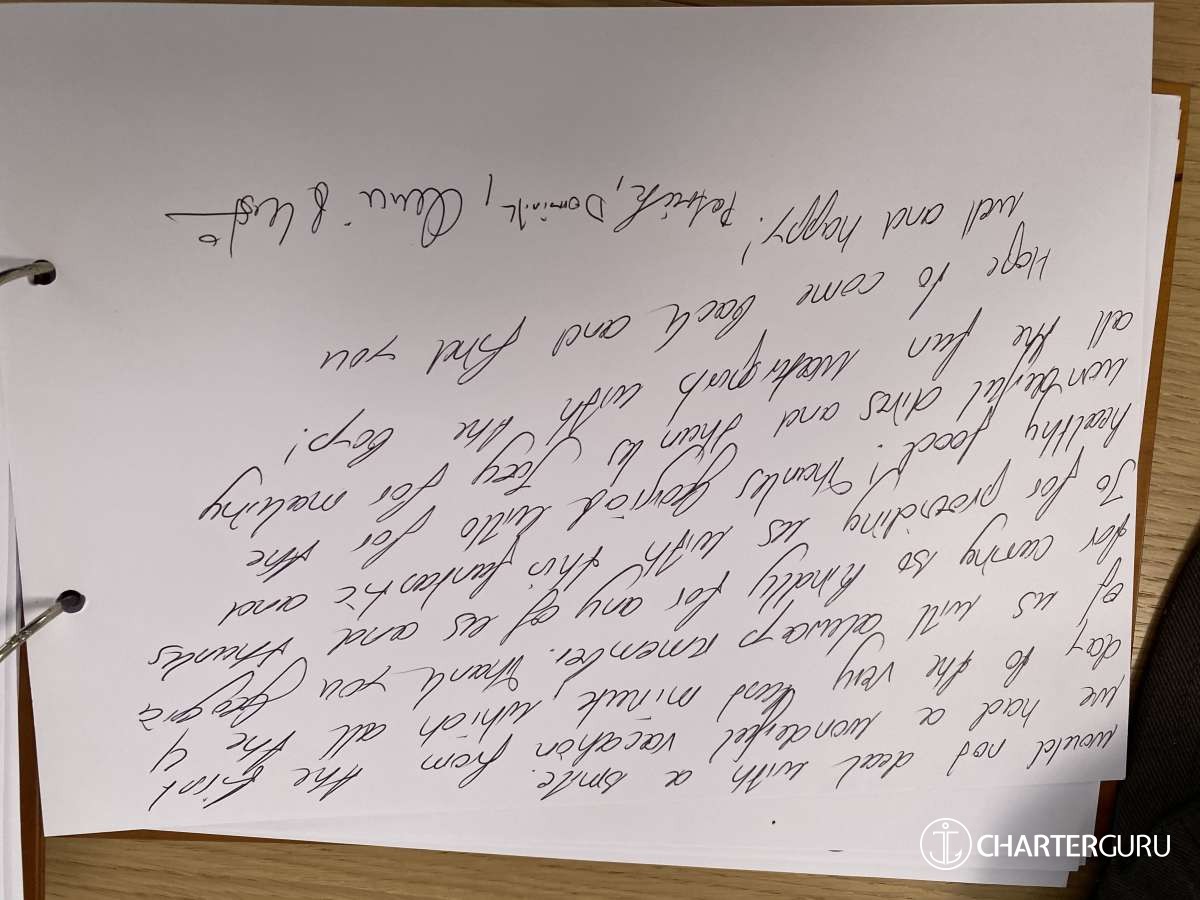 would not deal with a smile.
we had a wonderful vacation from the first
day to the very last minute which all the 4
of us will always remember. Thank you Georgia
for caring so kindly for any of us and thanks
To for providing us with this fantastic and
healthy food! Thanks for the
wonderful dives and thanks Joey for making
all the fun watersports with the boys!
Hope to come back and find you
well and happy! Patrick, Dominik, &
CHARTERGURU